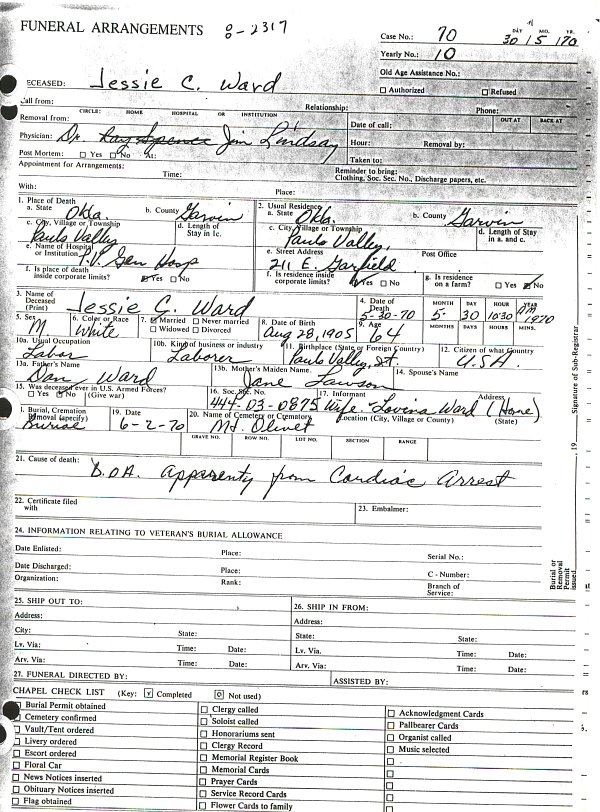 FUNERAL ARRANGEMENTS 8-2317
Case No.: 70 DAY MO. YR. 30 / 5 / 70
Yearly No.: 10
Old Age Assistance No.:
DECEASED: Jessie C. Ward □ Authorized □ Refused
Call from: Relationship: Phone:
CIRCLE: HOME HOSPITAL OR INSTITUTION OUT AT BACK AT
Removal from: Date of call:
Physician: Dr. Ray Spence Jim Lindsay Hour: Removal by:
Post Mortem: □ Yes □ No At: Taken to:
Appointment for Arrangements: Time: Reminder to bring:
Clothing, Soc. Sec. No., Discharge papers, etc.
With: Place:
1. Place of Death 2. Usual Residence
a. State Okla. b. County Garvin a. State Okla. b. County Garvin
c. City, Village or Township Pauls Valley d. Length of Stay in 1c. c. City, Village or Township Pauls Valley d. Length of Stay in a. and c.
e. Name of Hospital or Institution P.V. Gen Hosp e. Street Address 211 E. Garfield Post Office
f. Is place of death inside corporate limits? Yes □ No f. Is residence inside corporate limits? Yes □ No g. Is residence on a farm? □ Yes No
3. Name of Deceased (Print) Jessie C. Ward 4. Date of Death 5-30-70 MONTH 5- DAY 30 HOUR 1030 AM YEAR 1970
5. Sex M 6. Color or Race White 7. Married □ Never married □ Widowed □ Divorced 8. Date of Birth Aug 28, 1905 9. Age 64 MONTHS DAYS HOURS MINS.
10a. Usual Occupation Labor 10b. Kind of business or industry Laborer 11. Birthplace (State or Foreign Country) Pauls Valley, I.T. 12. Citizen of what Country U.S.A.
13a. Father's Name Dan Ward 13b. Mother's Maiden Name Jane Lawson 14. Spouse's Name
15. Was deceased ever in U.S. Armed Forces? □ Yes No (Give war) 16. Soc. Sec. No. 444-03-0875 17. Informant Wife - Lovina Ward (Home) Address
18. Burial, Cremation Removal (specify) Burial 19. Date 6-2-70 20. Name of Cemetery or Crematory Mt. Olivet Location (City, Village or County) (State)
GRAVE NO. ROW NO. LOT NO. SECTION RANGE
21. Cause of death: D.O.A. Apparenty from Cardiac Arrest
22. Certificate filed with 23. Embalmer:
24. INFORMATION RELATING TO VETERAN'S BURIAL ALLOWANCE
Date Enlisted: Place: Serial No.:
Date Discharged: Place: C - Number:
Organization: Rank: Branch of Service:
25. SHIP OUT TO: 26. SHIP IN FROM:
Address: Address:
City: State: State: State:
Lv. Via: Time: Date: Lv. Via: Time: Date:
Arv. Via: Time: Date: Arv. Via: Time: Date:
27. FUNERAL DIRECTED BY: ASSISTED BY:
CHAPEL CHECK LIST (Key: v Completed o Not used)
□ Burial Permit obtained □ Clergy called □ Acknowledgment Cards
□ Cemetery confirmed □ Soloist called □ Pallbearer Cards
□ Vault/Tent ordered □ Honorariums sent □ Organist called
□ Livery ordered □ Clergy Record □ Music selected
□ Escort ordered □ Memorial Register Book □
□ Floral Car □ Memorial Cards □
□ News Notices inserted □ Prayer Cards □
□ Obituary Notices inserted □ Service Record Cards □
□ Flag obtained □ Flower Cards to family □
Burial or Removal Permit issued 19 Signature of Sub-Registrar